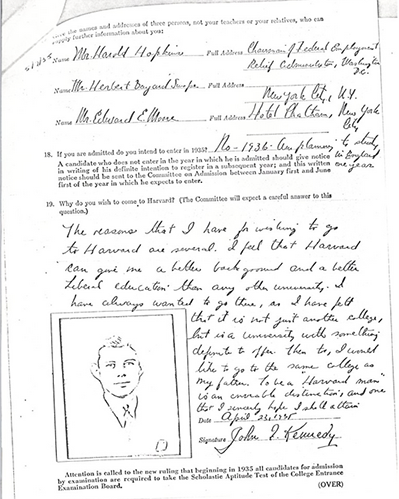 Give the names and addresses of three persons, not your teachers or your relatives, who can
supply further information about you:
Name Mr. Harold Hopkins Full Address Chairman of Federal Employment
Relief Administration, Washington
D.C.
Name Mr. Herbert Bayard Full Address
New York City, N.Y.
Name Mr. Edward E. Moore Full Address Hotel Chatham, New York
City
18. If you are admitted do you intend to enter in 1935? No - 1936. Am planning to study
in England
one year
A candidate who does not enter in the year in which he is admitted should give notice
in writing of his definite intention to register in a subsequent year; and this written
notice should be sent to the Committee on Admission between January first and June
first of the year in which he expects to enter.
19. Why do you wish to come to Harvard? (The Committee will expect a careful answer to this
question.)
The reasons that I have for wishing to go
to Harvard are several. I feel that Harvard
can give me a better background and a better
liberal education than any other university. I
have always wanted to go there, as I have felt
that it is not just another college,
but is a university with something
definite to offer. Then too, I would
like to go to the same college as
my father. To be a "Harvard man"
is an enviable distinction, and one
that I sincerely hope I shall attain
Date April 23, 1935
Signature John F. Kennedy
Attention is called to the new ruling that beginning in 1935 all candidates for admission
by examination are required to take the Scholastic Aptitude Test of the College Entrance
Examination Board.
(OVER)